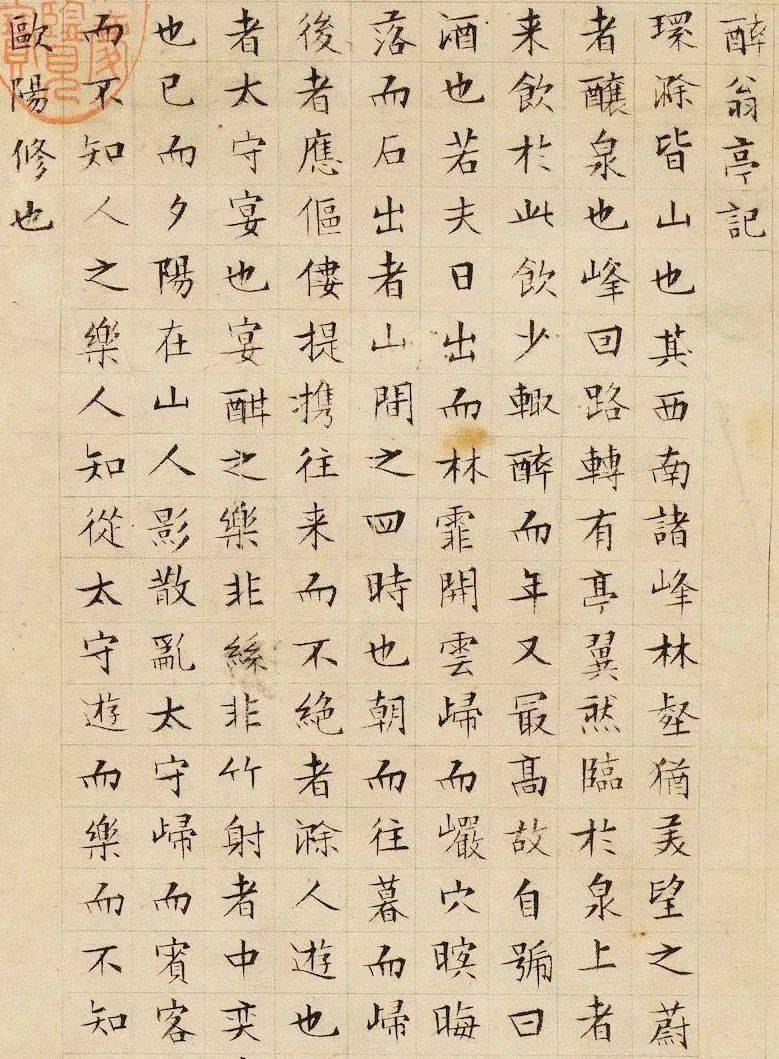 醉翁亭記
環滁皆山也其西南諸峰林壑猶美望之蔚
者釀泉也峰回路轉有亭翼然臨於泉上者
来飲於此飲少輒醉而年又最高故自號曰
酒也若夫日出而林霏開雲歸而巖穴暝晦
落而石出者山間之四時也朝而往暮而歸
後者應傴僂提携往来而不絶者滁人遊也
者太守宴也宴酣之樂非絲非竹射者中奕
也已而夕陽在山人影散亂太守歸而賓客
而不知人之樂人知從太守遊而樂而不知
歐陽修也